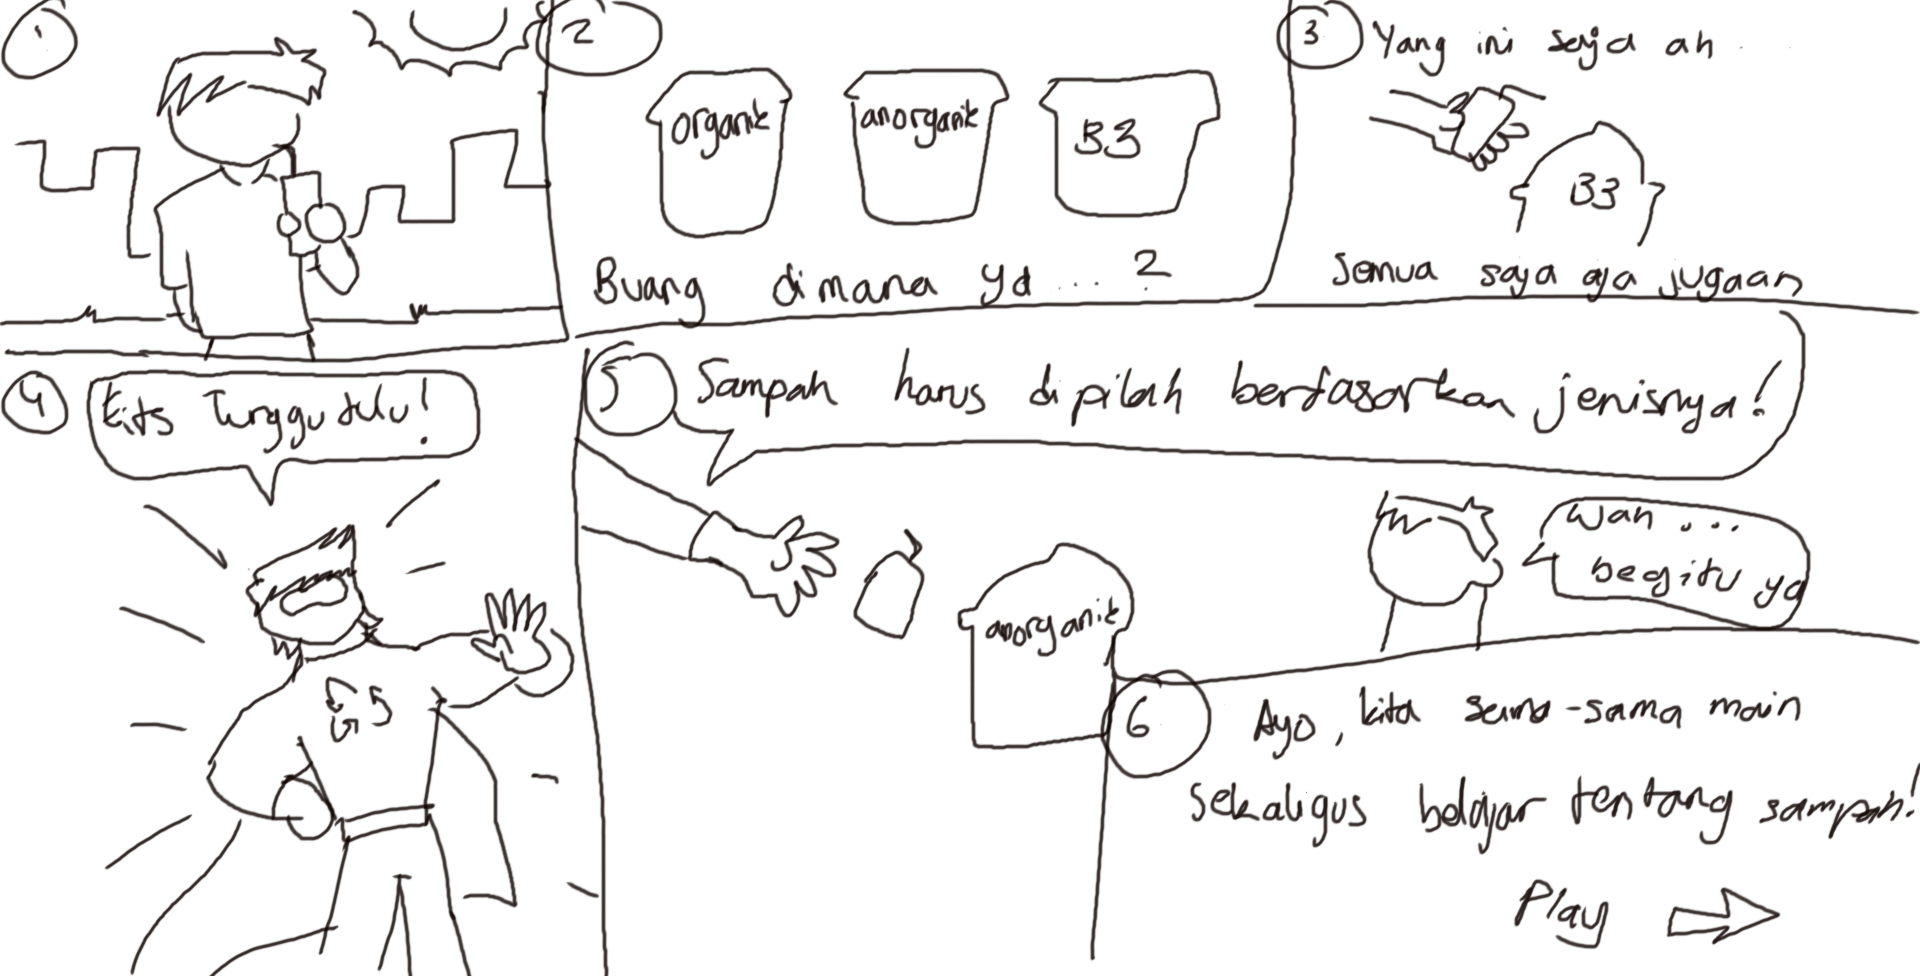 1
2
organik
anorganik
B3
Buang dimana ya ... ?
3
Yang ini saja ah
B3
Semua saja aja jugaan
4
Eits Tunggu dulu!
5
Sampah harus dipilah berdasarkan jenisnya!
anorganik
Wah ...
begitu ya
6
Ayo, kita sama-sama main
Sekaligus belajar tentang sampah!
Play